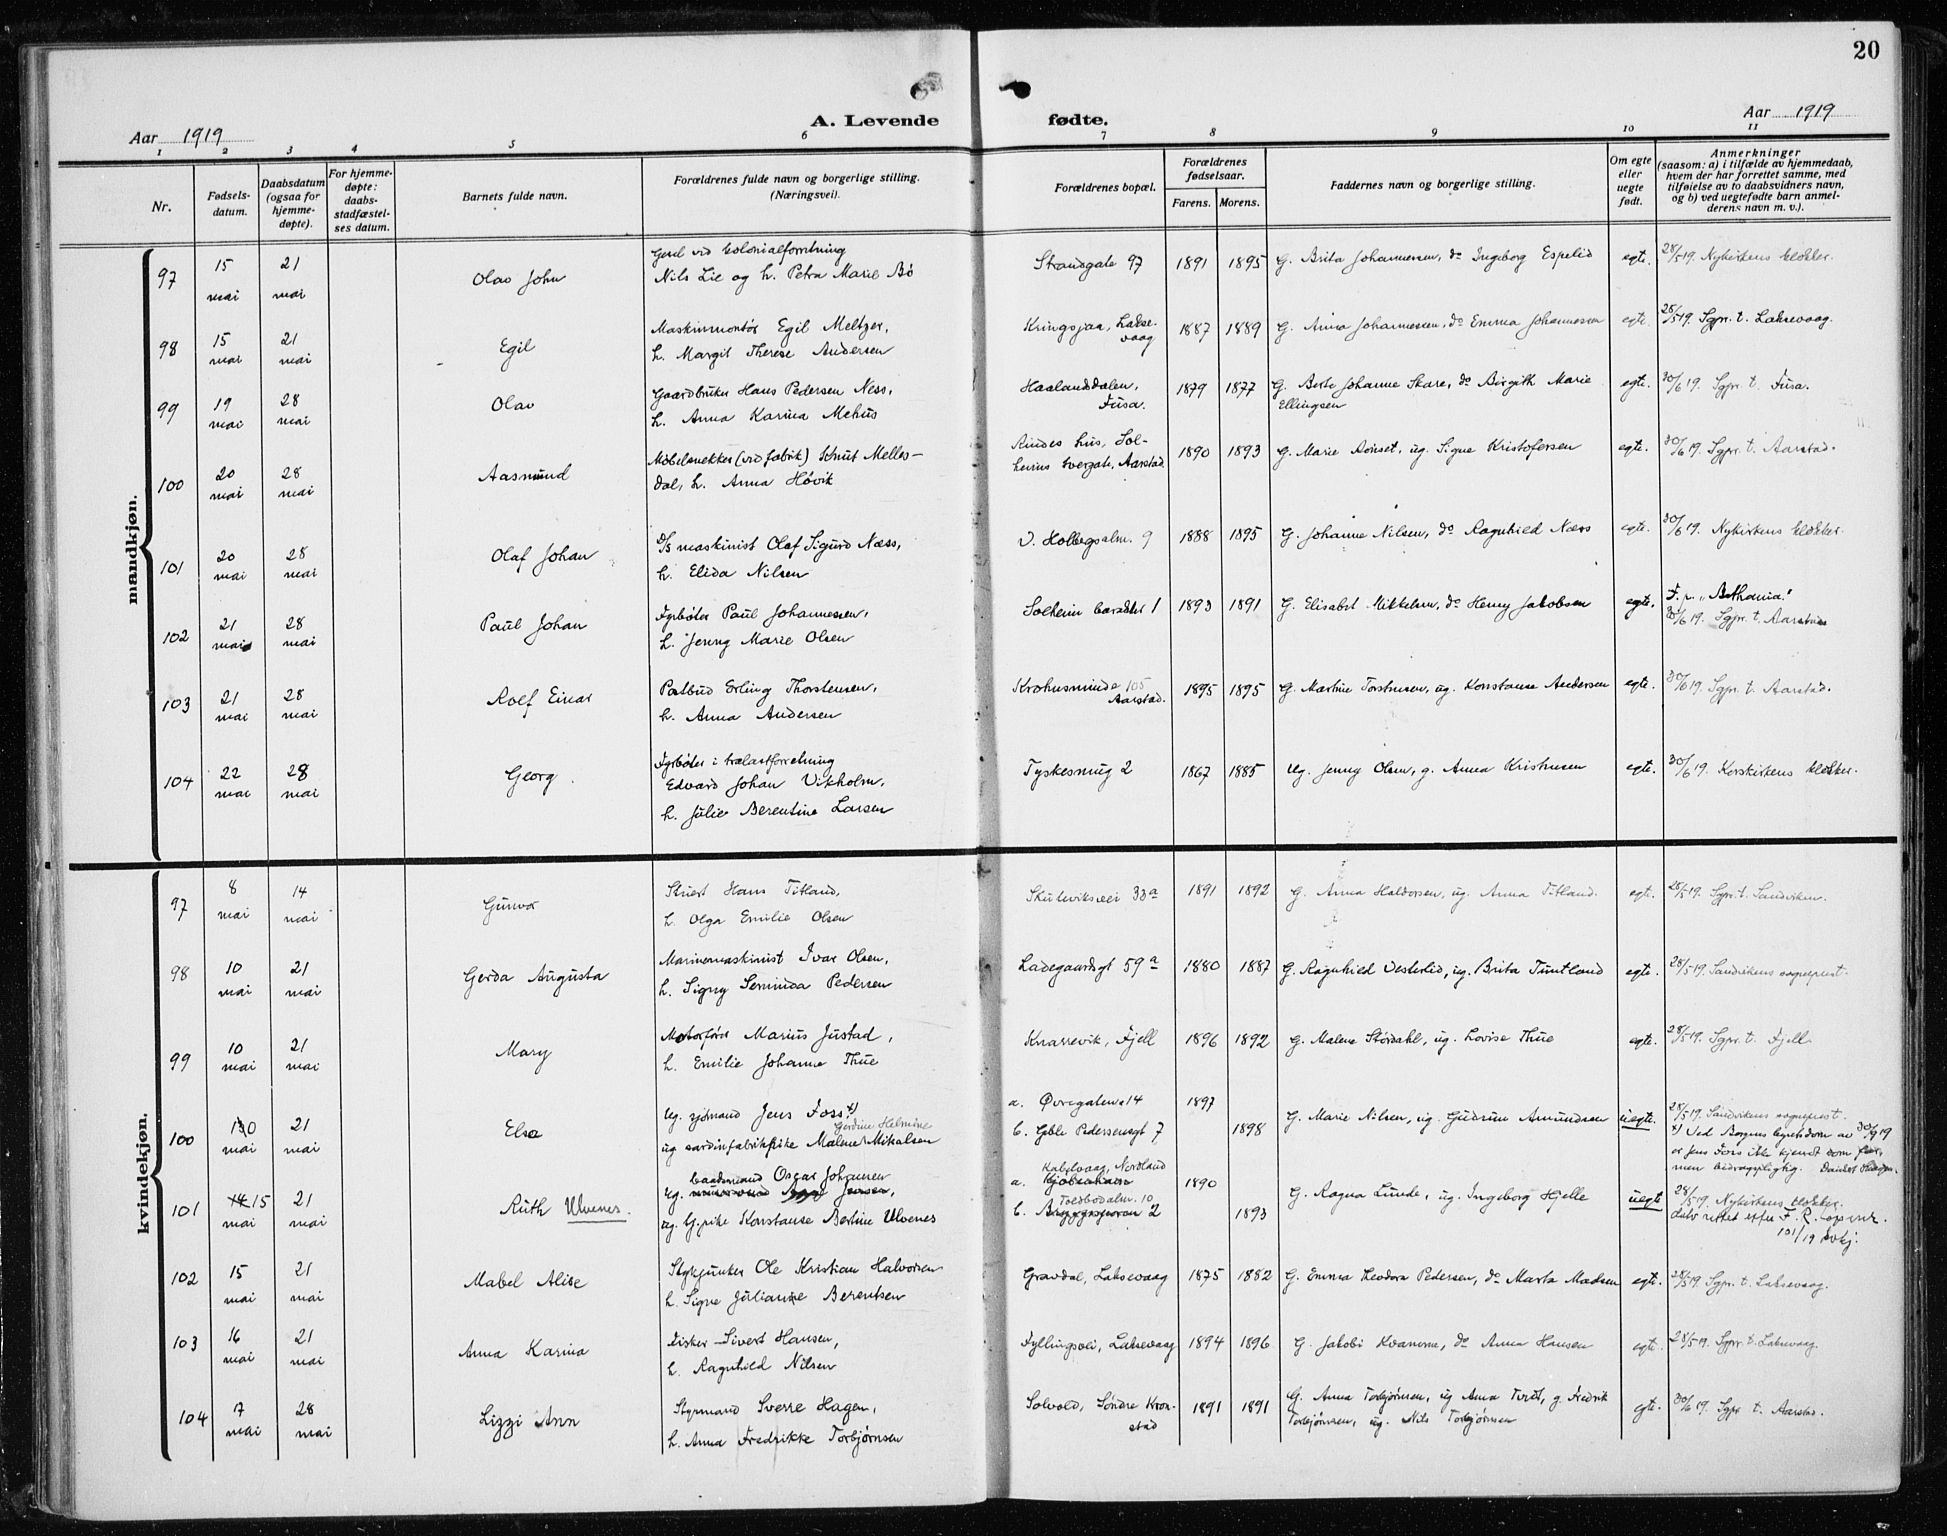 20
Aar 1919
A. Levende
fødte.
Aar 1919
1 2 3 4 5 6 7 8 9 10 11
Nr.
Fødsels-
datum.
Daabsdatum
(ogsaa for
hjemme-
døpte).
For hjemme-
døpte:
daabs-
stadfæstel-
ses datum.
Barnets fulde navn.
Forældrenes fulde navn og borgerlige stilling.
(Næringsvei).
Forældrenes bopæl.
Forældrenes
fødselsaar.
Farens. Morens.
Faddernes navn og borgerlige stilling.
Om egte
eller
uegte
født.
Anmerkninger
(saasom: a) i tilfælde av hjemmedaab,
hvem der har forrettet samme, med
tilføielse av to daabsvidners navn,
og b) ved uegtefødte barn anmel-
derens navn m. v.).
mandkjøn.
97
15 mai
21 mai
Olav John
vid Colonialforretning
Nils Lie og h. Petra Marie Bø
Strandgate 97
1891 1895
G. Brita Johannessen, do Ingeborg Espelid
egte.
28/5 19. Nykirkens klokker.
98
15 mai
21 mai
Egil
Maskinmontør Egil Meltzer,
h. Margit Therese Andersen
Kringsjaa, Lakse-
vaag
1887 1889
G. Anna Johannessen, do Emma Johannessen
egte.
28/5 19. Sgpr. t. Laksevaag.
99
19 mai
28 mai
Olav
Gaardbruker Hans Pedersen Ness,
h. Anna Karina Mehus
Haalanddalen,
Fusa.
1879 1877
G. Berte Johanne Skare, do Birgith Marie
Ellingsen
egte.
30/6 19. Sgpr. t. Fusa.
100
20 mai
28 mai
Aasmund
Møbelsnekker (vid fabrik) Knut Melles-
dal, h. Anna Høvik
Rindes hus, Sol-
heims tvergate, Aarstad.
1890 1893
G. Marie Rønset, ug. Signe Kristofersen
egte.
30/6 19. Sgpr. t. Aarstad.
101
20 mai
28 mai
Olaf Johan
D/S maskinist Olaf Sigurd Næss,
h. Elida Nilsen
V. Holbegsalm. 9
1888 1895
G. Johanne Nilsen, do Ragnhild Næss
egte.
30/6 19. Nykirkens klokker.
102
21 mai
28 mai
Paul Johan
Fyrbøter Paul Johannessen,
h. Jenny Marie Olsen
Solheim barakker 1
1893 1891
G. Elisabet Mikkelsen, do Henny Jakobsen
egte.
F. p. "Bethania."
30/6 19. Sgpr. t. Aarstad
103
21 mai
28 mai
Rolf Einar
Paabud Erling Thorstensen,
h. Anna Andersen
Krohnsminde 105
Aarstad.
1895 1895
G. Martine Torstensen, ug. Konstanse Andersen
egte.
30/6 19. Sgpr. t. Aarstad.
104
22 mai
28 mai
Georg.
Fyrbøter i trælastforretning
Edvard Johan Vikholm,
h. Julie Berentine Larsen
Tyskesmug 2
1867 1885
ug. Jenny Olsen, g. Anna Kristensen
egte.
30/6 19. Korskirkens klokker.
kvindekjøn.
97
8 mai
14 mai
Gunvor
Stuert Hans Titland,
h. Olga Emilie Olsen
Skuteviksvei 33a
1891 1892
G. Anna Haldorsen, ug. Anna Titland.
egte.
28/5 19. Sgpr. t. Sandviken.
98
10 mai
21 mai
Gerda Augusta
Marinemaskinist Ivar Olsen,
h. Signy Seminda Pedersen
Ladegaardsgt 59a
1880 1887
G. Ragnhild Vesterlid, ug. Brita Tuntland
egte.
28/5 19. Sandvikens sogneprest.
99
10 mai
21 mai
Mary
Motorfører Marius Justad,
h. Emilie Johanne Thue
Knarrevik, Fjell
1896 1892
G. Malene Stordahl, ug. Lovise Thue
egte.
28/5 19. Sgpr. t. Fjell.
100
10 mai
21 mai
Else
ug. sjømand Jens Foss +)
Gerdine Helmine
ug sardinfabrikpike Malene Mikalsen
a. Øvregaten 14
b. Geble Pedersensgt 7
1897
1898
G. Marie Nilsen, ug. Gudrun Amundsen
uegte.
28/5 19. Sandvikens sogneprest.
+) Ved Bergens byretsdom av 30/9 19
er Jens Foss ikke kjendt som far,
men bidragspligtig.
101
14 15 mai
21 mai
Ruth Ulvenes.
baadsmand Oscar Johansen
ug.
ug. Gpike Konstanse Bertine Ulvenes
Kabelvaag, Nordland
a. Kjøbenhavn
Toldbodalm. 10
b. Bryggesporen 2
1890
1893
G. Ragna Lunde, ug. Ingeborg Hjelle
uegte
28/5 19. Nykirkens klokker.
dato rettet efter F. R.
101/19
102
15 mai
21 mai
Mabel Alise
Stykjunker Ole Kristian Halvorsen
h. Signe Julianne Berentsen
Gravdal, Laksevaag
1875 1882
G. Emma Theodora Pedersen, do Marta Madsen
egte.
28/5 19. Sgpr. t. Laksevaag.
103
16 mai
21 mai
Anna Karina
Fisker Sivert Hansen,
h. Ragnhild Nilsen
Fyllingsvei, Laksevaag
1894 1896
G. Jakobi Kvamme, do Anna Hansen
egte.
28/5 19. Sgpr. t. Laksevaag.
104
17 mai
28 mai
Lizzi Ann
Styrmand Sverre Hagen,
h. Anna Fredrikke Torbjørnsen
Solvold, Søndre Kron-
stad
1891 1891
G. Anna Torbjørnsen, ug Anna Tvedt, g. Fredrik
Torbjørnsen, ug. Nils Torbjørnsen
egte.
30/6 19. Sgpr t. Aarstad.